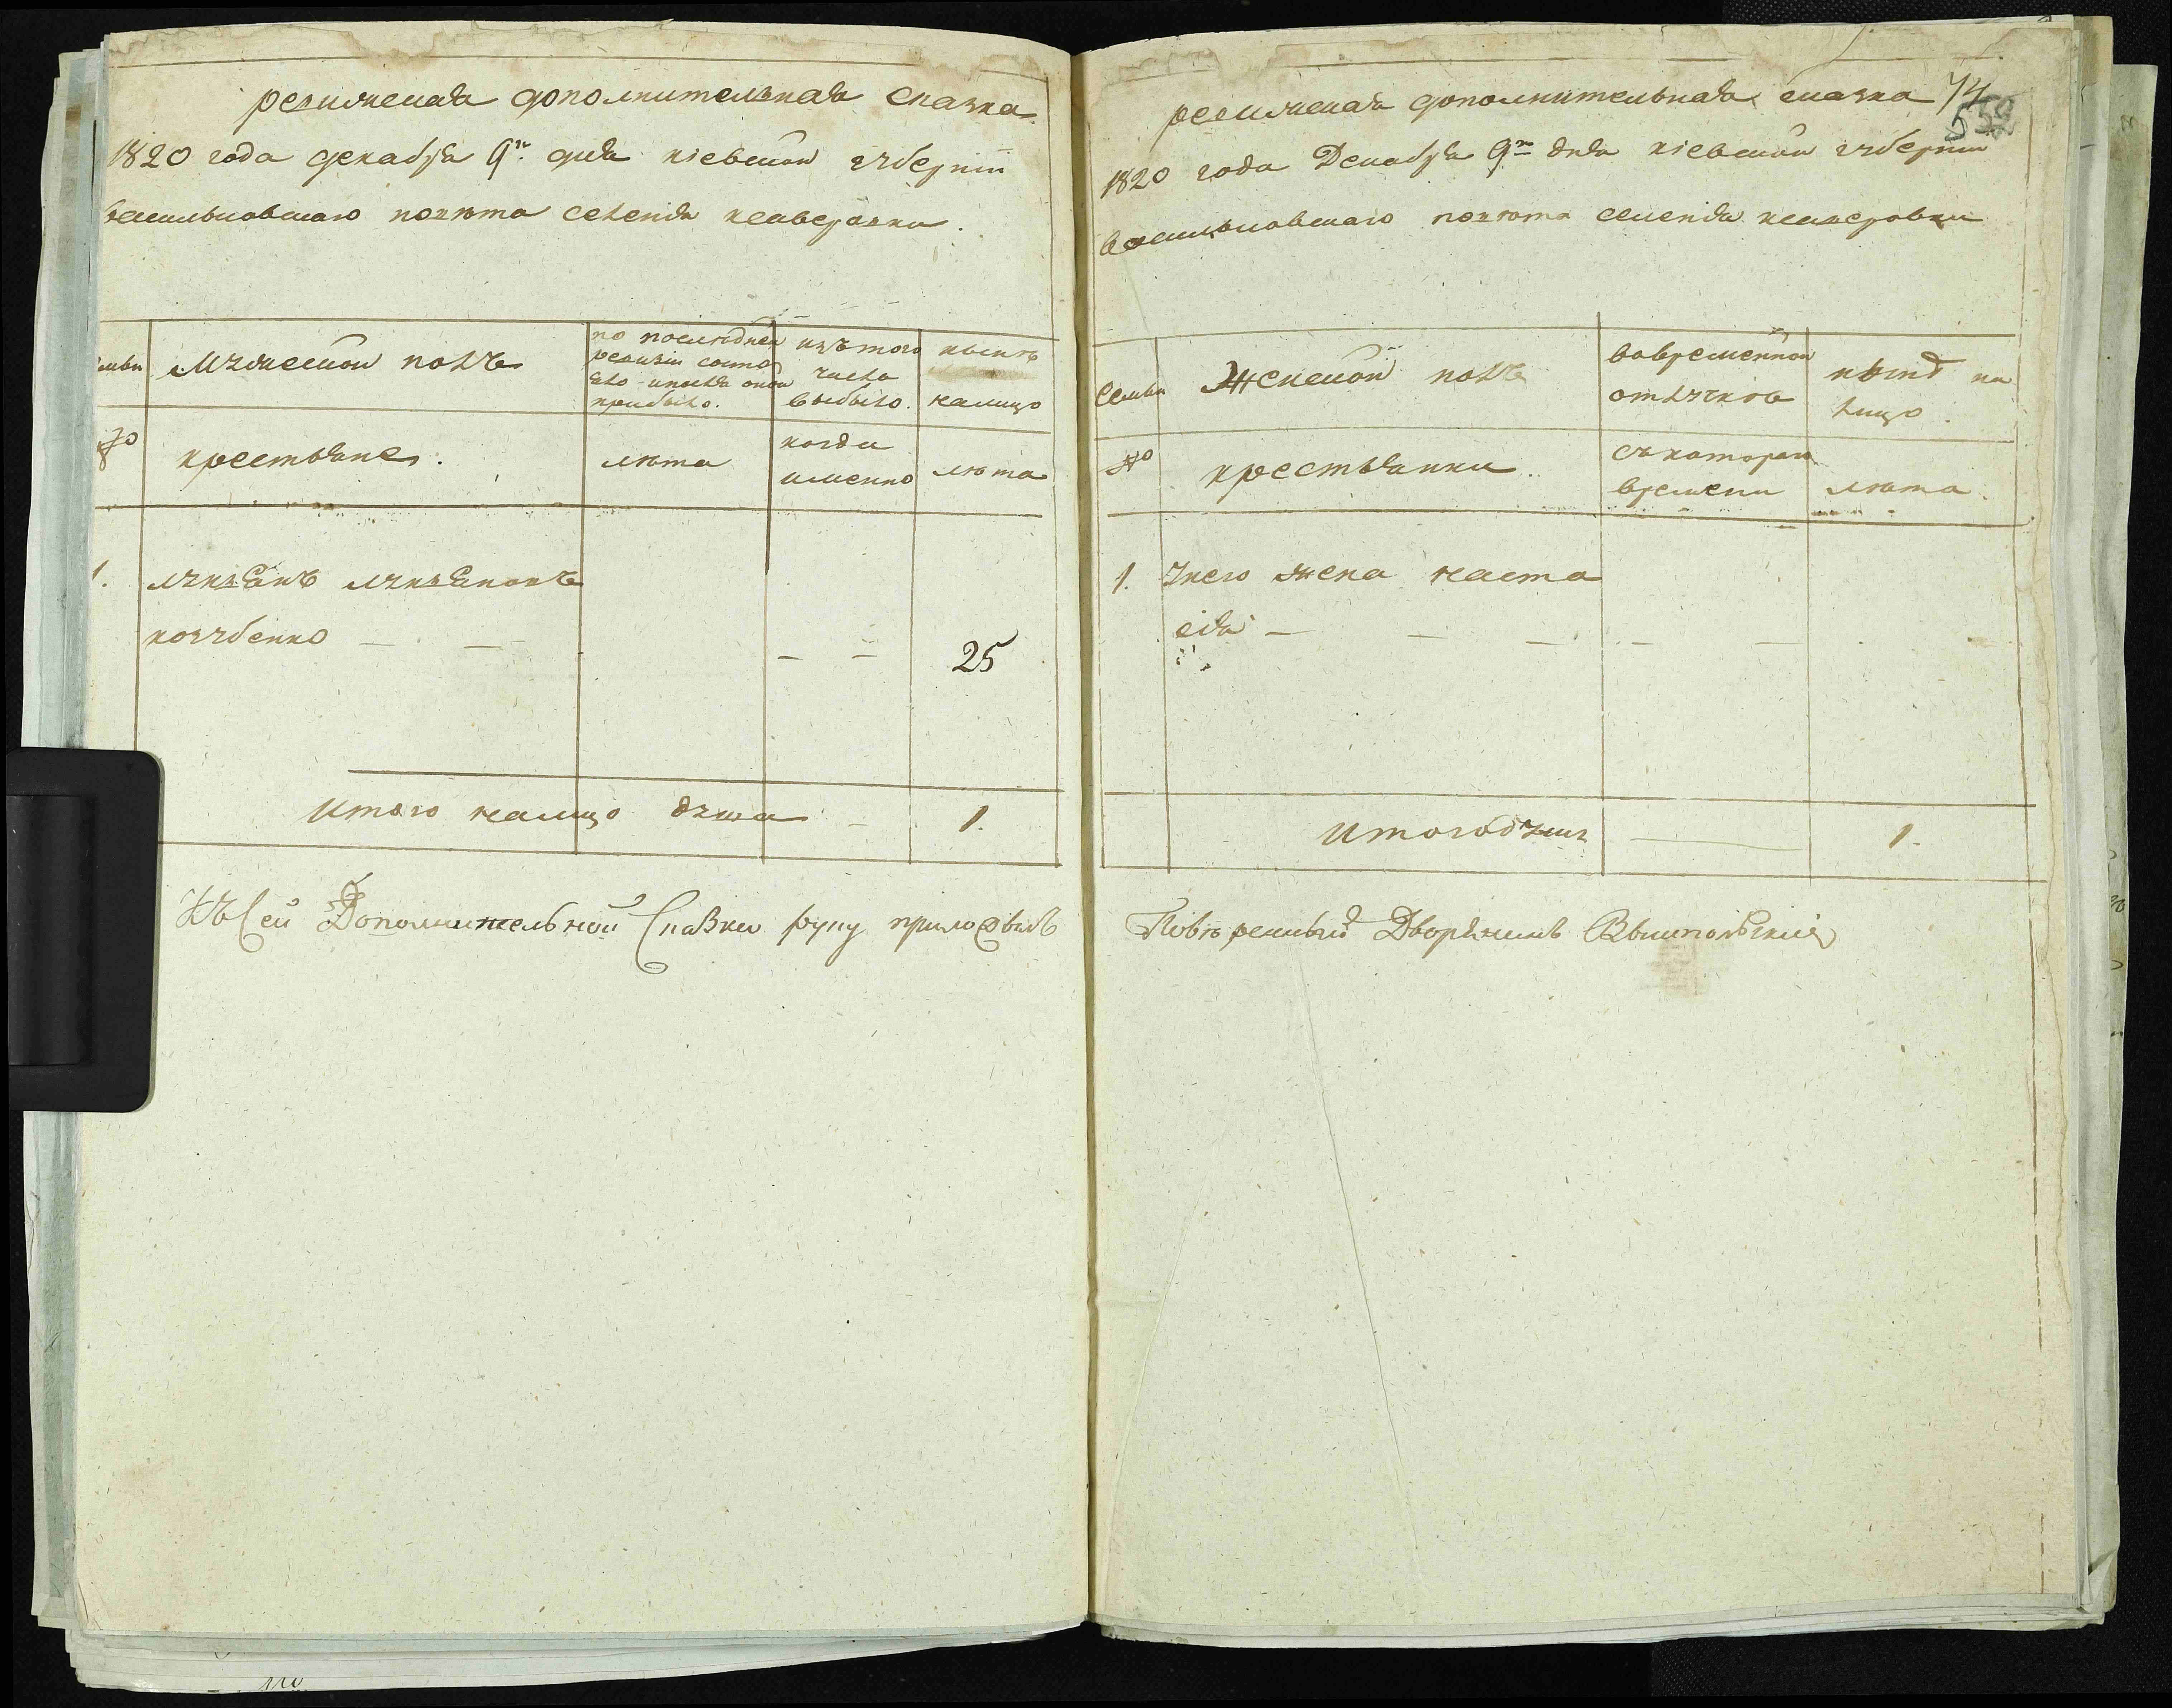 ревижская дополнителная сказка
1820 года декабря 9го дня кіевской губерніи
васильковскаго повѣта селенія ксаверовки
семьи
Мужеской полъ
по последней
ревизіи состо
яло и после оной
прибыло.
изъ того
числа
выбыло.
нынѣ
налицо
№
крестьяне.
лѣта
когда
именно
лѣта
1.
лукьянъ лукьяновъ
коззубенко — —
— —
25
Итого налицо душа — 1.
Къ сей Дополнительной Сказки руку приложилъ
ревижская дополнительная сказка 74
559
1820 года Декабря 9го дня кіевской губерніи
васильковскаго повѣта селенія ксаверовки
семьи
Женской полъ
во временной
отлучкѣ
нынѣ на
лицо.
№
крестьянки.
съ котораго
времени
лѣта.
1. у него жена наста
сія — — — — —
Итого душъ — 1.
Повѣренный Дворянинъ Вышпольскій